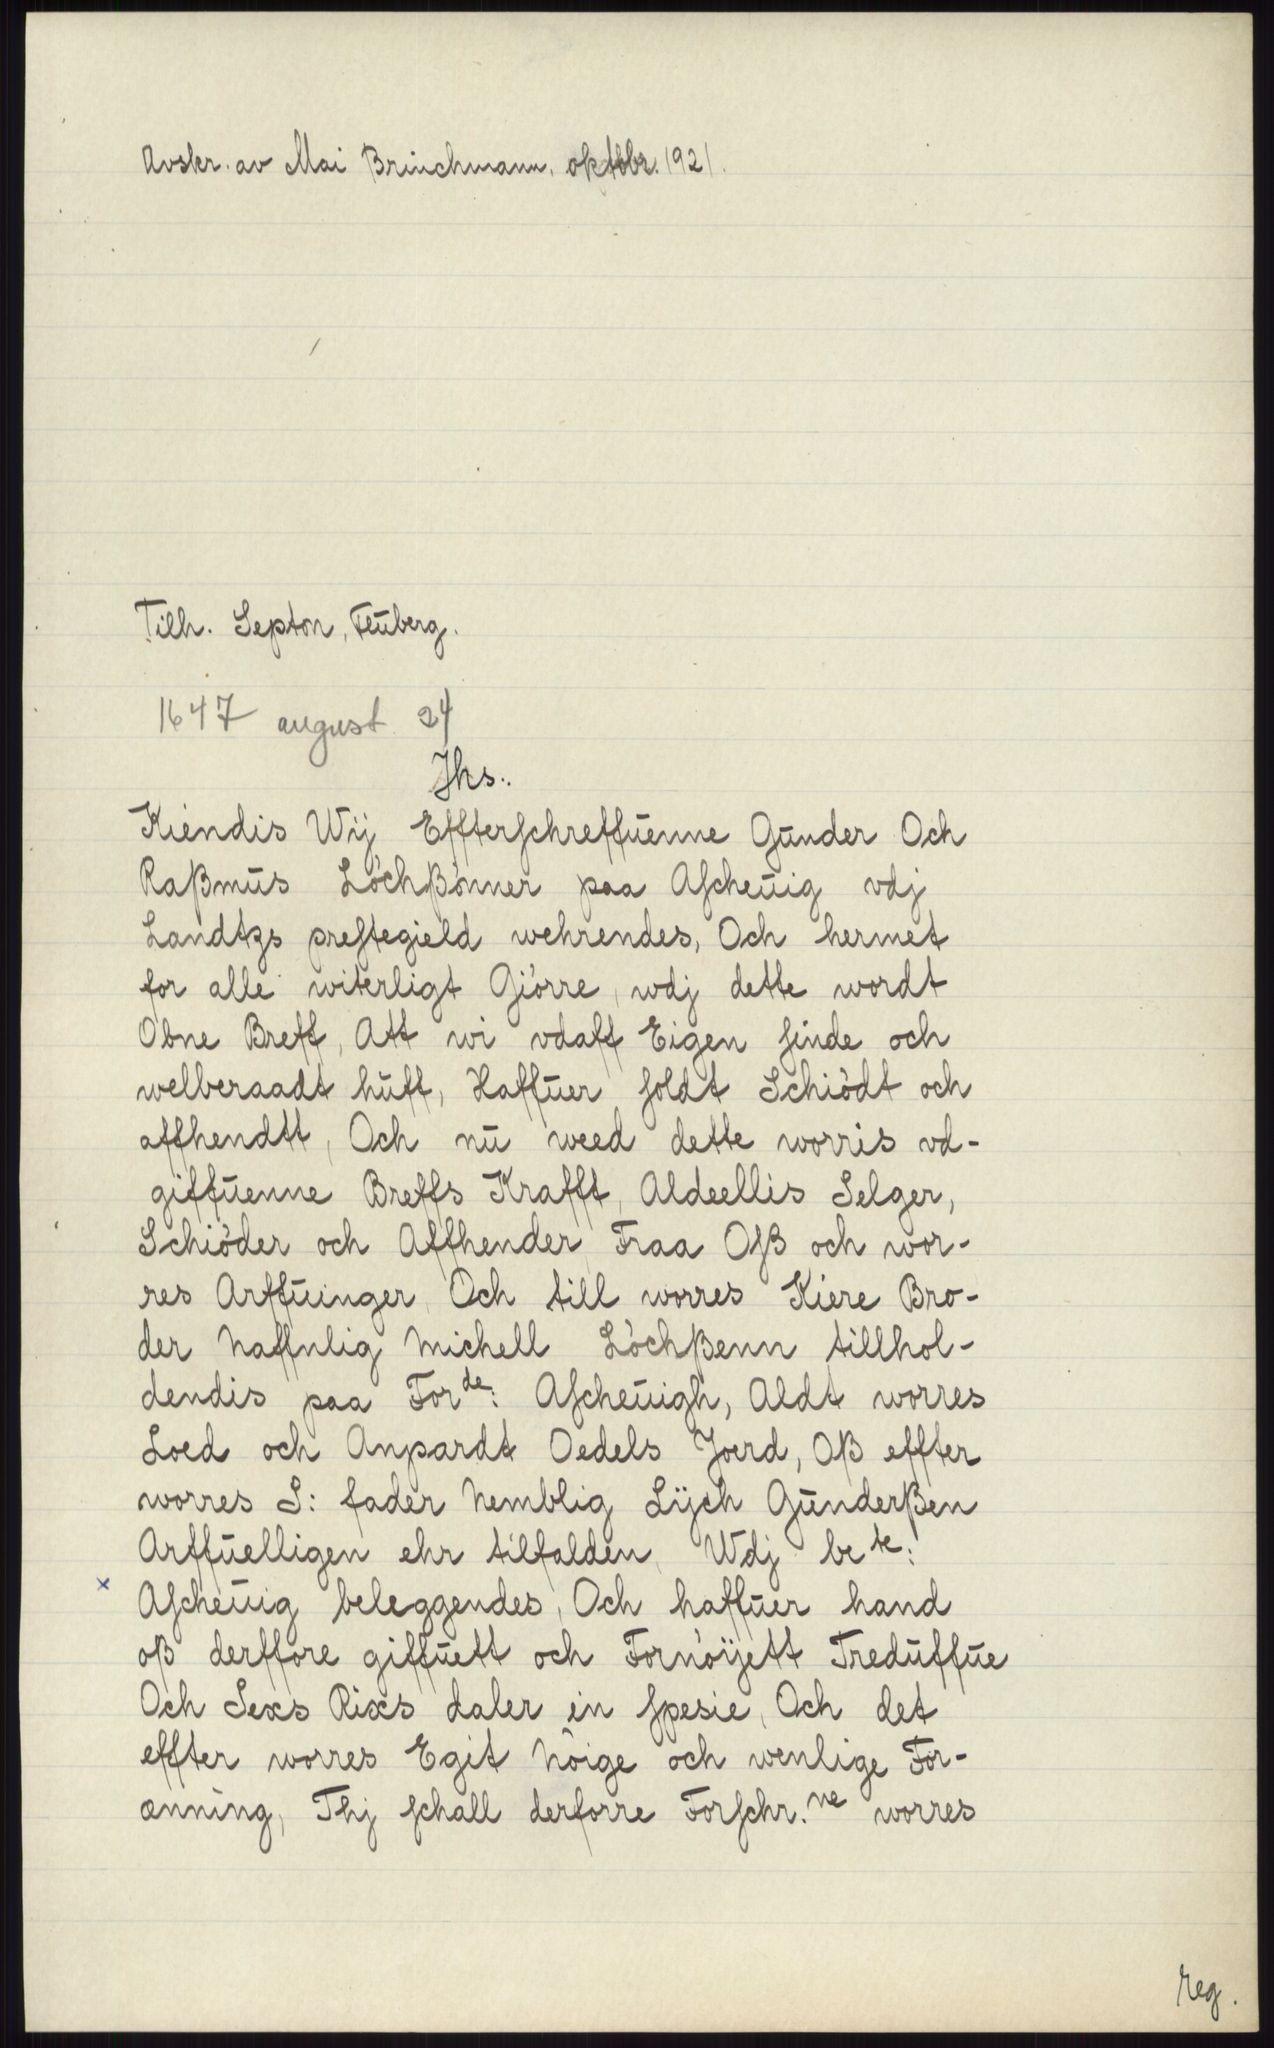 Avskr. av Mai Brinchmann, oktobr. 1921.
Tilh. Septon, Fluberg.
1647 august 24
Jhs.
Kiendis Wij Effterſchreffuenne Gunder Och
Raßmus Löchßönner paa Aſcheuig vdj
Landtzs preſtegield wehrendes, Och hermet
for alle witerligt Giörre, wdj dette wordt
Obne Breff, Att wi vdaff Eigen ſinde och
welberaadt huff, Haffuer ſoldt Schiödt och
affhendtt, Och nu weed dette worris vd-
giffuenne Breffs Krafft, Aldeellis Selger,
Schiöder och Affhender Fraa Oß och wor-
res Arffuinger, Och till worres Kiere Bro-
der Naffnlig Michell Löchßenn tillhol-
dendis paa Forde: Aſcheuigh, Aldt worres
Loed och Anpardt Oedels Joerd, Oß effter
worres S: fader Nemblig Lÿch Gunderßen
Arffuelligen ehr tilfalden, Wdj bete:
x Aſcheuig beleggendes, Och haffuer hand
oß derffore giffuett och Fornöÿett Treduffue
Och Sexs Rixs daler in ſpesie, Och det
effter worres Egit Nöige och wenlige For-
ænning, Thj ſchall derforre Forſchr.ne worres
reg.